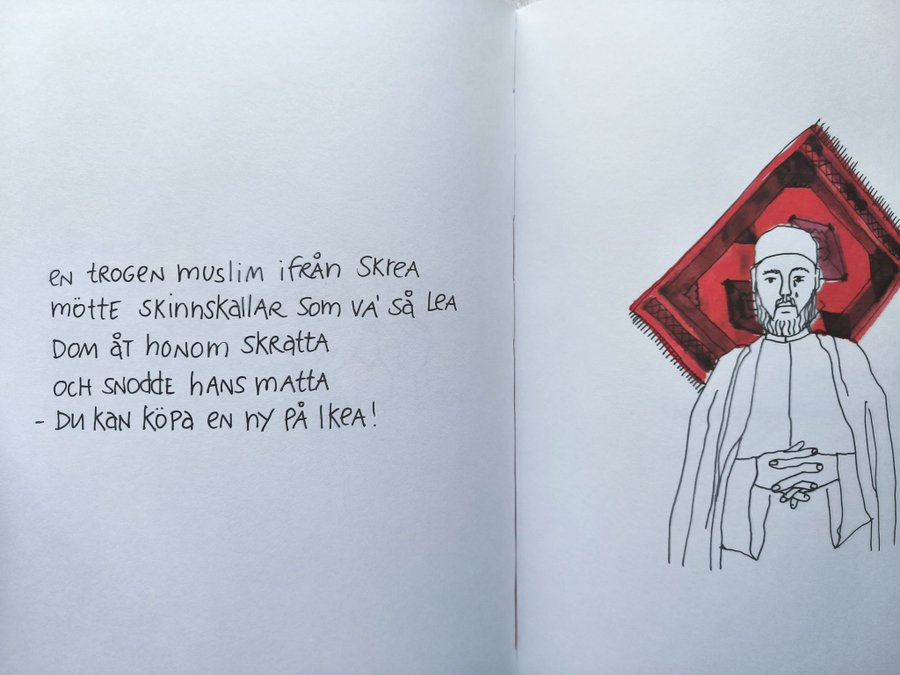 en trogen muslim ifrån Skrea
mötte skinnskallar som va' så lea
dom åt honom skratta
och snodde hans matta
- Du kan köpa en ny på Ikea!